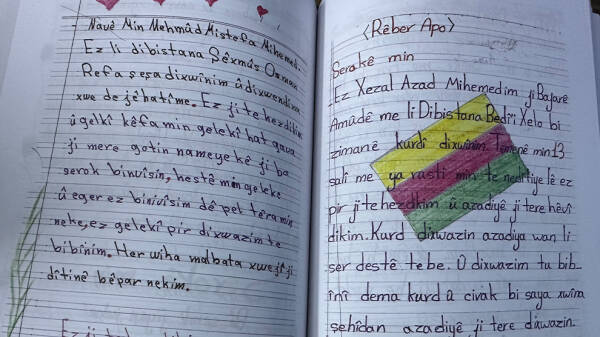 Navê Min Mehmûd Mistefa Mihemed.
Ez li dibistana Şêxmûs Osman
Refa şeşa dixwînim û dixwendina
xwe de jêhatîme. Ez ji te hezdikim
û gelkî kêfa min gelekî hat gava
ji mere gotin nameyekê ji ba
serok binvîsin, hestê min geleke
û eger ez binivîsim dê pel têra min
neke, ez gelekî pir dixwazim te
bibînim. Her wiha malbata xwe jî ji
dîtinê bêpar nekim.
Ez ji te
(Rêber Apo)
Serokê min
Ez Xezal Azad Mihemedim ji Bajarê
Amûdê me li Dibistana Bedî'i Xelo bi
zimanê kurdî dixwînin. Temenê min 13
salî me ya rastî min te nedîtiye lê ez
pir ji te hezdkim û azadiyê ji tere hêvî
dikim. Kurd dixwazin azadiya wan li
ser destê te be. O dixwazim tu bib-
înî dema kurd û civak bi saya xwîna
şehîdan azadiyê ji tere dixwazin.